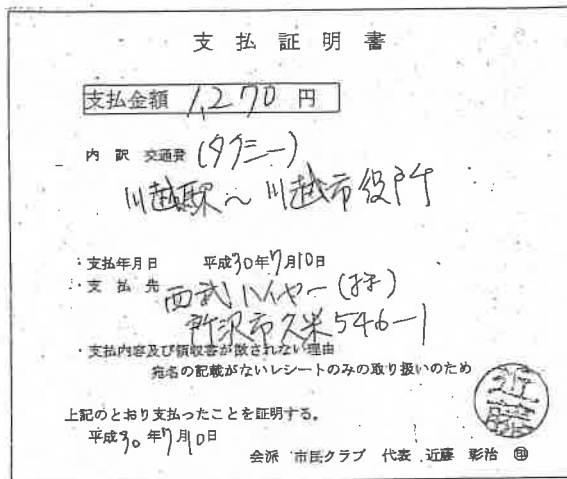 支払証明書
支払金額 1,270 円
内訳 交通費 (タクシー)
川越駅~川越市役所
・支払年月日 平成30年7月10日
・支払先 西武ハイヤー(株)
所沢市久米546-1
・支払内容及び領収書が徴されない理由
宛名の記載がないレシートのみの取り扱いのため
上記のとおり支払ったことを証明する。
平成30年7月10日
会派 市民クラブ 代表 近藤 彰治 ㊞
近藤